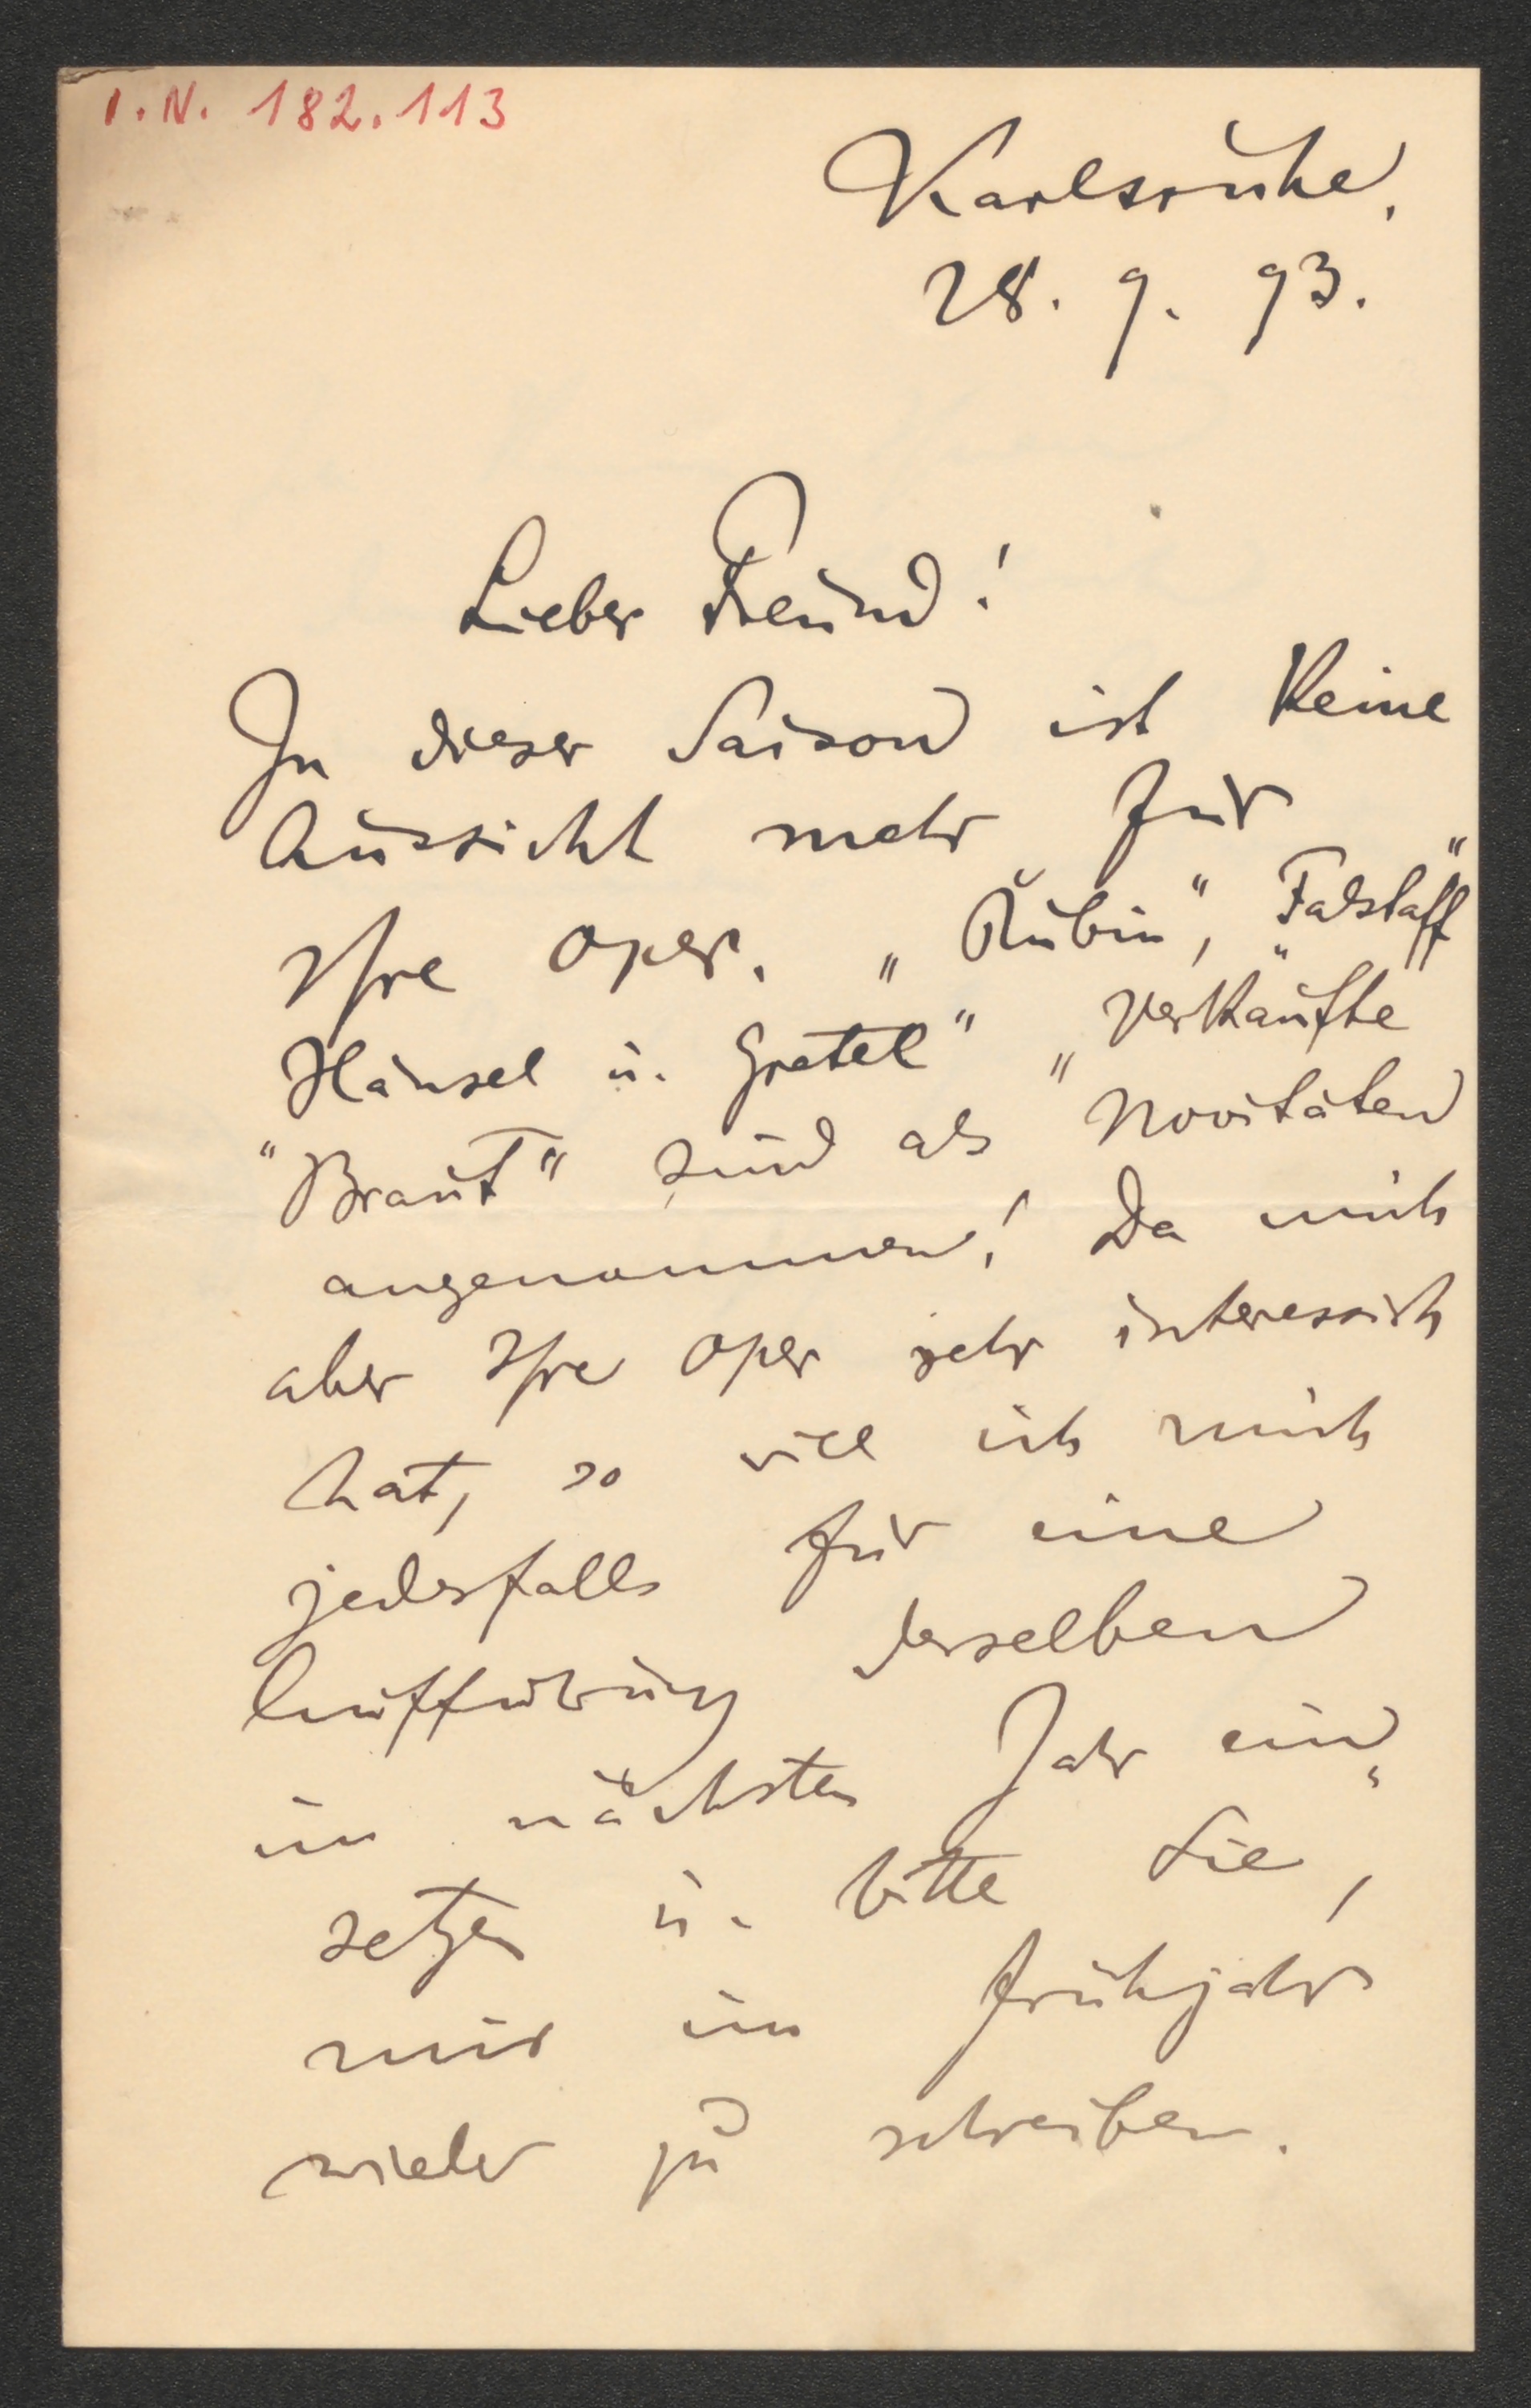 I.N. 182.113
Karlsruhe,
28. 9. 93.
Lieber Freund!
In dieser Saison ist keine
Aussicht mehr für
Ihre Oper. „Rubin“, „Falstaff“
Hänsel u. Gretel“ „Verkaufte
"Braut“ sind als Novitäten
angenommen! Da mich
aber Ihre Oper sehr interessirt
hat, so will ich mich
jedesfalls für eine
Aufführung derselben
im nächsten Jahr ein„
setzen u. bitte Sie,
mir im Frühjahr
wieder zu schreiben.